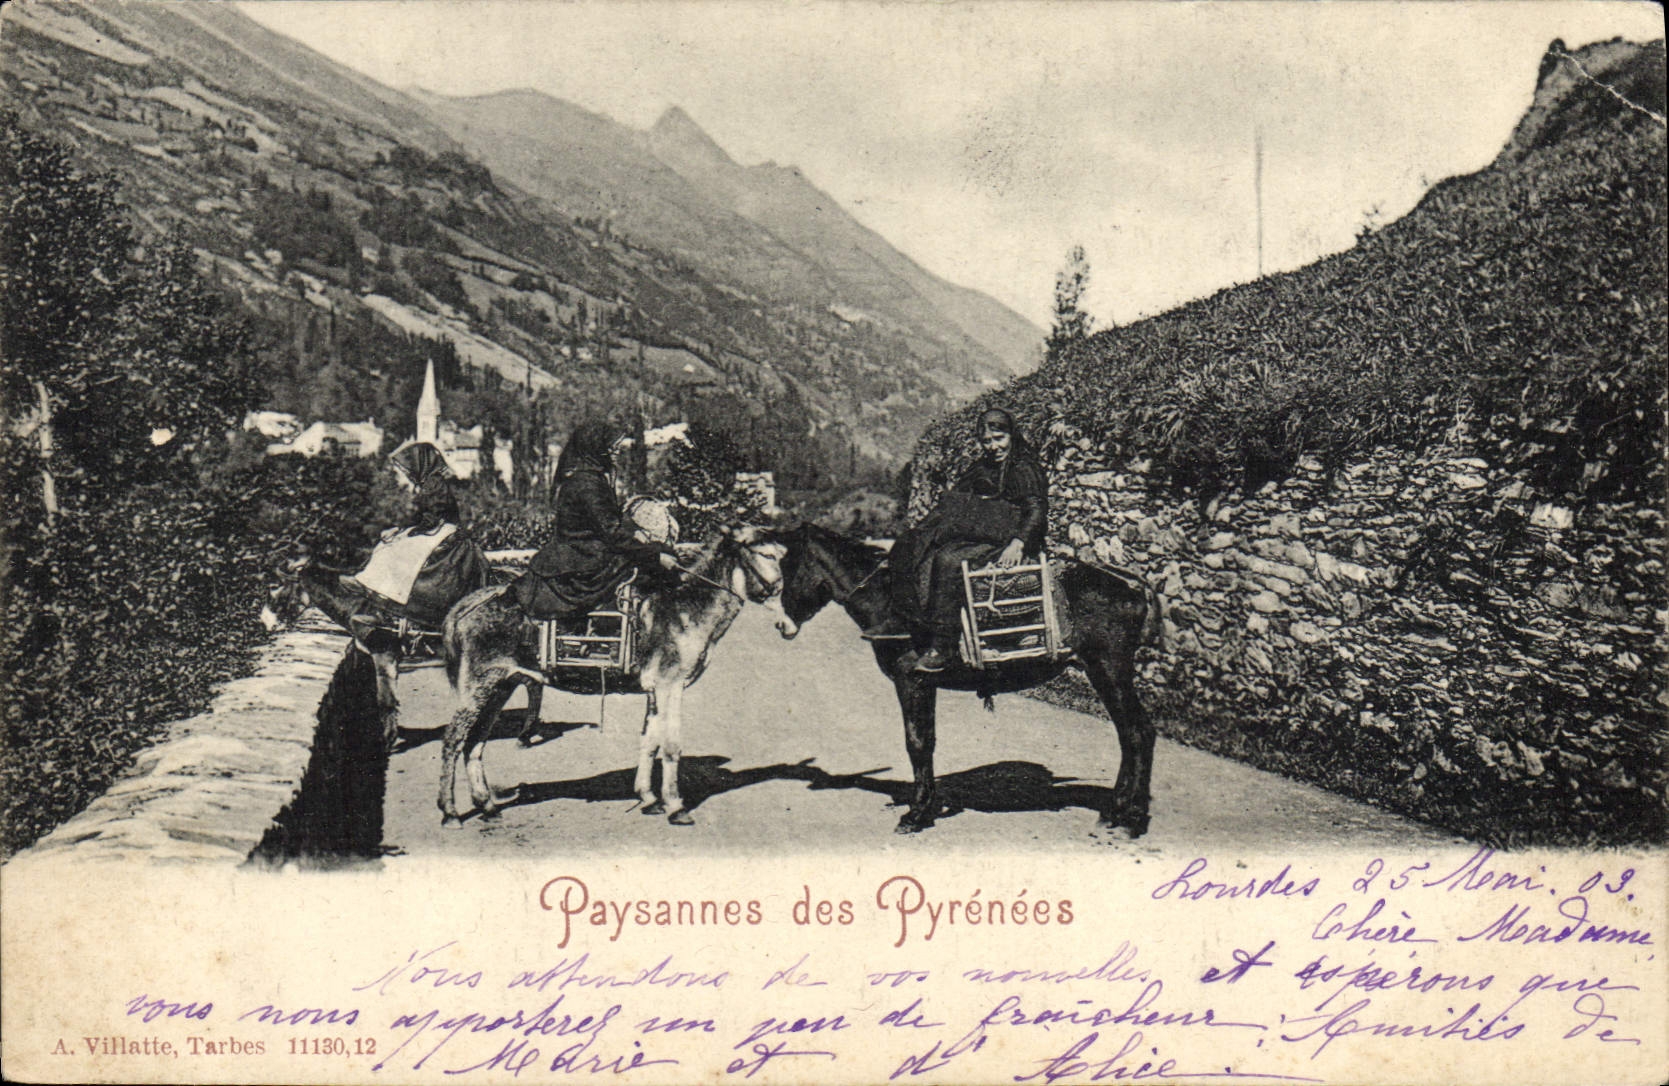 Paysannes des Pyrénées
Lourdes 25 Mai. 03.
Chère Madame
Nous attendons de vos nouvelles et espérons que
vous nous apporterez un peu de fraîcheur; Amitiés de
Marie et d'Alice.
A. Villatte, Tarbes 11130,12